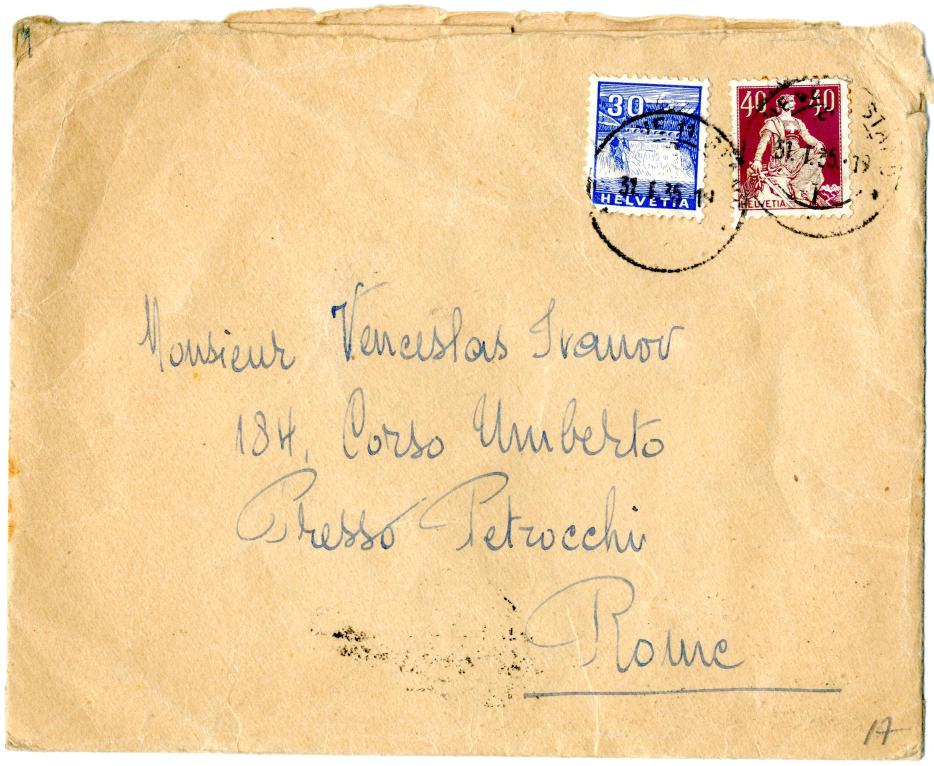 30
HELVETIA
40 40
HELVETIA
31. I. 35
31. I. 35. 19
Monsieur Venceslas Ivanov
184, Corso Umberto
Presso Petrocchi
Rome
17